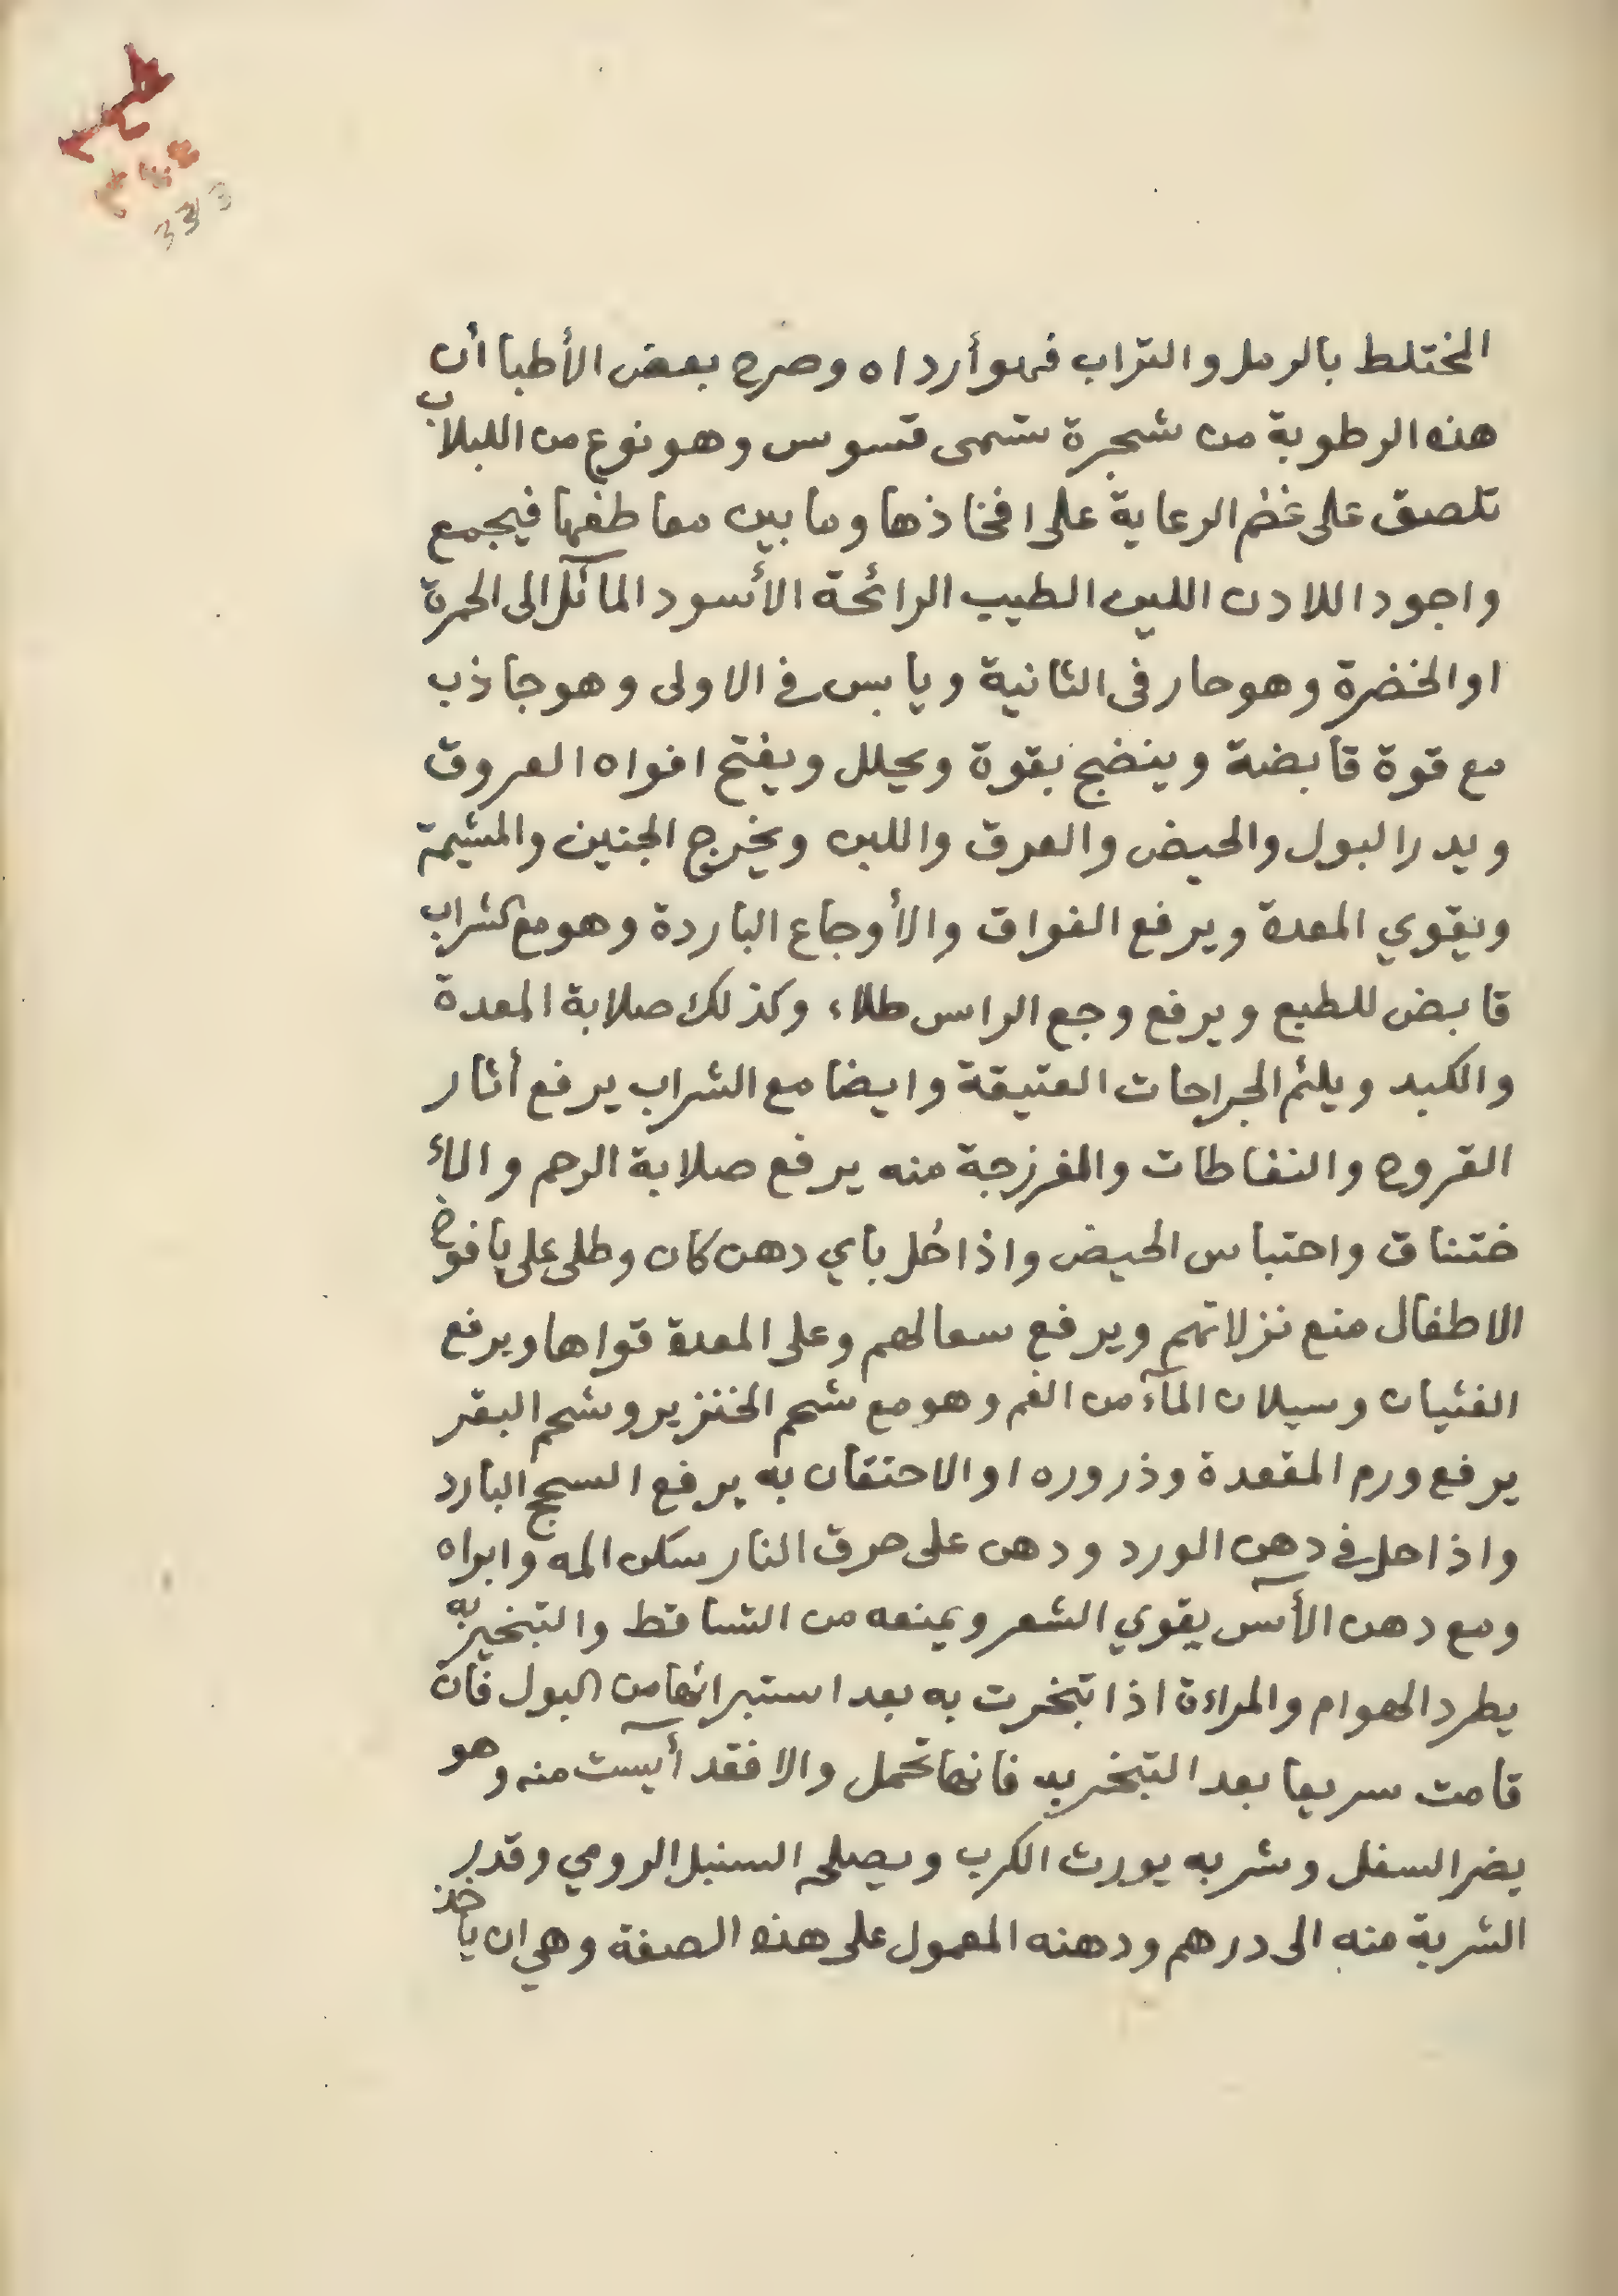 333
المختلط بالرمل والتراب فهو أرداه وصرح بعض الأطبا أن
هذه الرطوبة من شجرة تسمى قسوس وهو نوع من اللبلاب
تلصق على غنم الرعاية على افخاذها وما بين معاطفها فيجمع
واجود اللادن اللين الطيب الرائحة الأسود المآئل الى الحمرة
او الخضرة وهو حار في الثانية ويابس في الاولى وهو جاذب
مع قوة قابضة وينضج بقوة ويحلل ويفتح افواه العروق
ويدر البول والحيض والعرق واللبن ويخرج الجنين والمشيمة
ويقوي المعدة ويرفع الفواق والأوجاع الباردة وهو مع الشراب
قابض للطبع ويرفع وجع الراس طلاء وكذلك صلابة المعدة
والكبد ويلئم الجراحات العتيقة وايضا مع الشراب يرفع أثار
القروح والنفاطات والفرزجة منه يرفع صلابة الرحم والأ
ختناق واحتباس الحيض واذا حُل بأي دهن كان وطلى على يافوخ
الاطفال منع نزلاتهم ويرفع سعالهم وعلى المعدة قواها ويرفع
الغثيان وسيلان المآء من الفم وهو مع شحم الخنزير وشحم البقر
يرفع ورم المقعدة وذروره او الاحتقان به يرفع السحج البارد
واذا حل في دهن الورد ودهن على حرق النار سكن المه وابراه
ومع دهن الأس يقوي الشعر ويمنعه من التساقط والتبخير به
يطرد الهوام والمراءة اذا تبخرت به بعد استبرائها من البول فان
قامت سريعا بعد التبخر به فانها تحمل والا فقد أيست منه وهو
يضر السفل وشربه يورث الكرب ويصلحه السنبل الرومي وقدر
الشربة منه الى درهم ودهنه المعمول على هذه الصفة وهي ان ياخذ